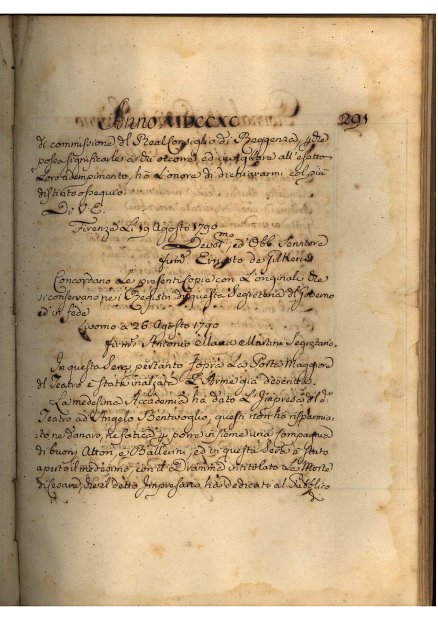 Anno MDCCXC 291
di commissione del Real Consiglio di Reggenza, 
possa significarle ed all'esatto
Loro adempimento, ha L'onore di dichiararmi col più
distinto ossequio
Di V. E.
Firenze Li 19 Agosto 1790
Devot.mo, ed Obb. Servitore
firm.º Ernesto de Gilkens
Concordano Le presenti copie con L'originali che
si conservano nei Registri di questa Segreteria di Governo
ed in fede
Livorno a 26 Agosto 1790
firm.º Antonio Maria Martini Segretario.
In questa Sera pertanto sopra La Porta Maggiore
del Teatro è stata inalzata L'Arme già descritta.
La medesima Accademia ha dato L'Impresa del d.º
Teatro ad Angelo Bentivoglio, questi non ha risparmia-
to ne danaro, ne fatica p porre insieme una compagnia
di buoni Attori, e Ballerini, ed in questa Sera è stato
aperto il medesimo, con il Dramma intitolato La Morte
di Cesare, che il detto Impresario ha dedicato al Pubblico